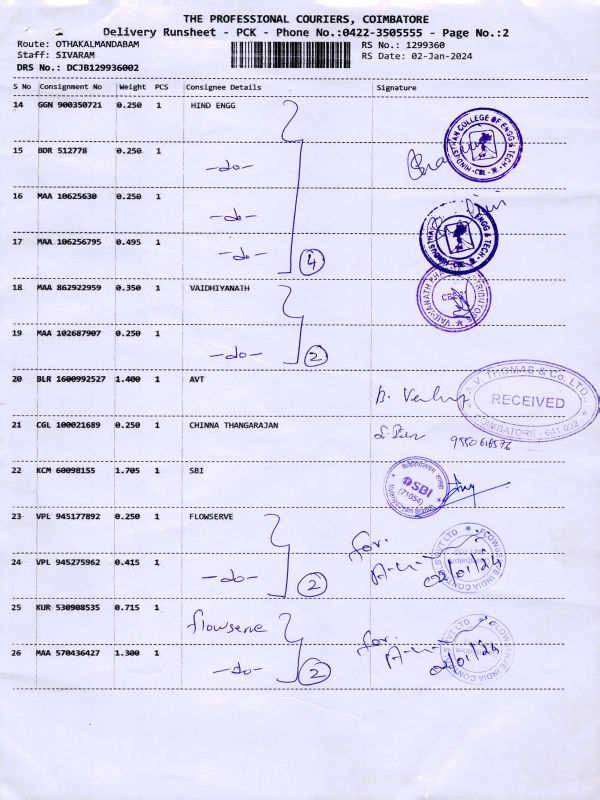 THE PROFESSIONAL COURIERS, COIMBATORE
Delivery Runsheet - PCK - Phone No.:0422-3505555 - Page No.:2
Route: OTHAKALMANDABAM
RS No.: 1299360
Staff: SIVARAM
RS Date: 02-Jan-2024
DRS No.: DCJB129936002
S No Consignment No Weight PCS Consignee Details Signature
14 GGN 900350721 0.250 1 HIND ENGG
HINDUSTHAN COLLEGE OF ENGG & TECH CBE
15 BDR 512778 0.250 1
-do-
16 MAA 10625630 0.250 1
-do-
17 MAA 106256795 0.495 1
-do- 4
ENGG & TECH
18 MAA 862922959 0.350 1 VAIDHIYANATH
19 MAA 102687907 0.250 1
-do- 2
20 BLR 1600992527 1.400 1 AVT
A.V. THOMAS & Co. LTD.,
RECEIVED
COIMBATORE - 641 032
21 CGL 100021689 0.250 1 CHINNA THANGARAJAN
22 KCM 60098155 1.705 1 SBI
SBI
(71054)
23 VPL 945177892 0.250 1 FLOWSERVE
for.
24 VPL 945275962 0.415 1
-do- 2
02/01/24
FLOWSERVE INDIA CONTROLS PVT LTD
25 KUR 530908535 0.715 1
flowserve
for.
26 MAA 570436427 1.300 1
-do- 2
02/01/24